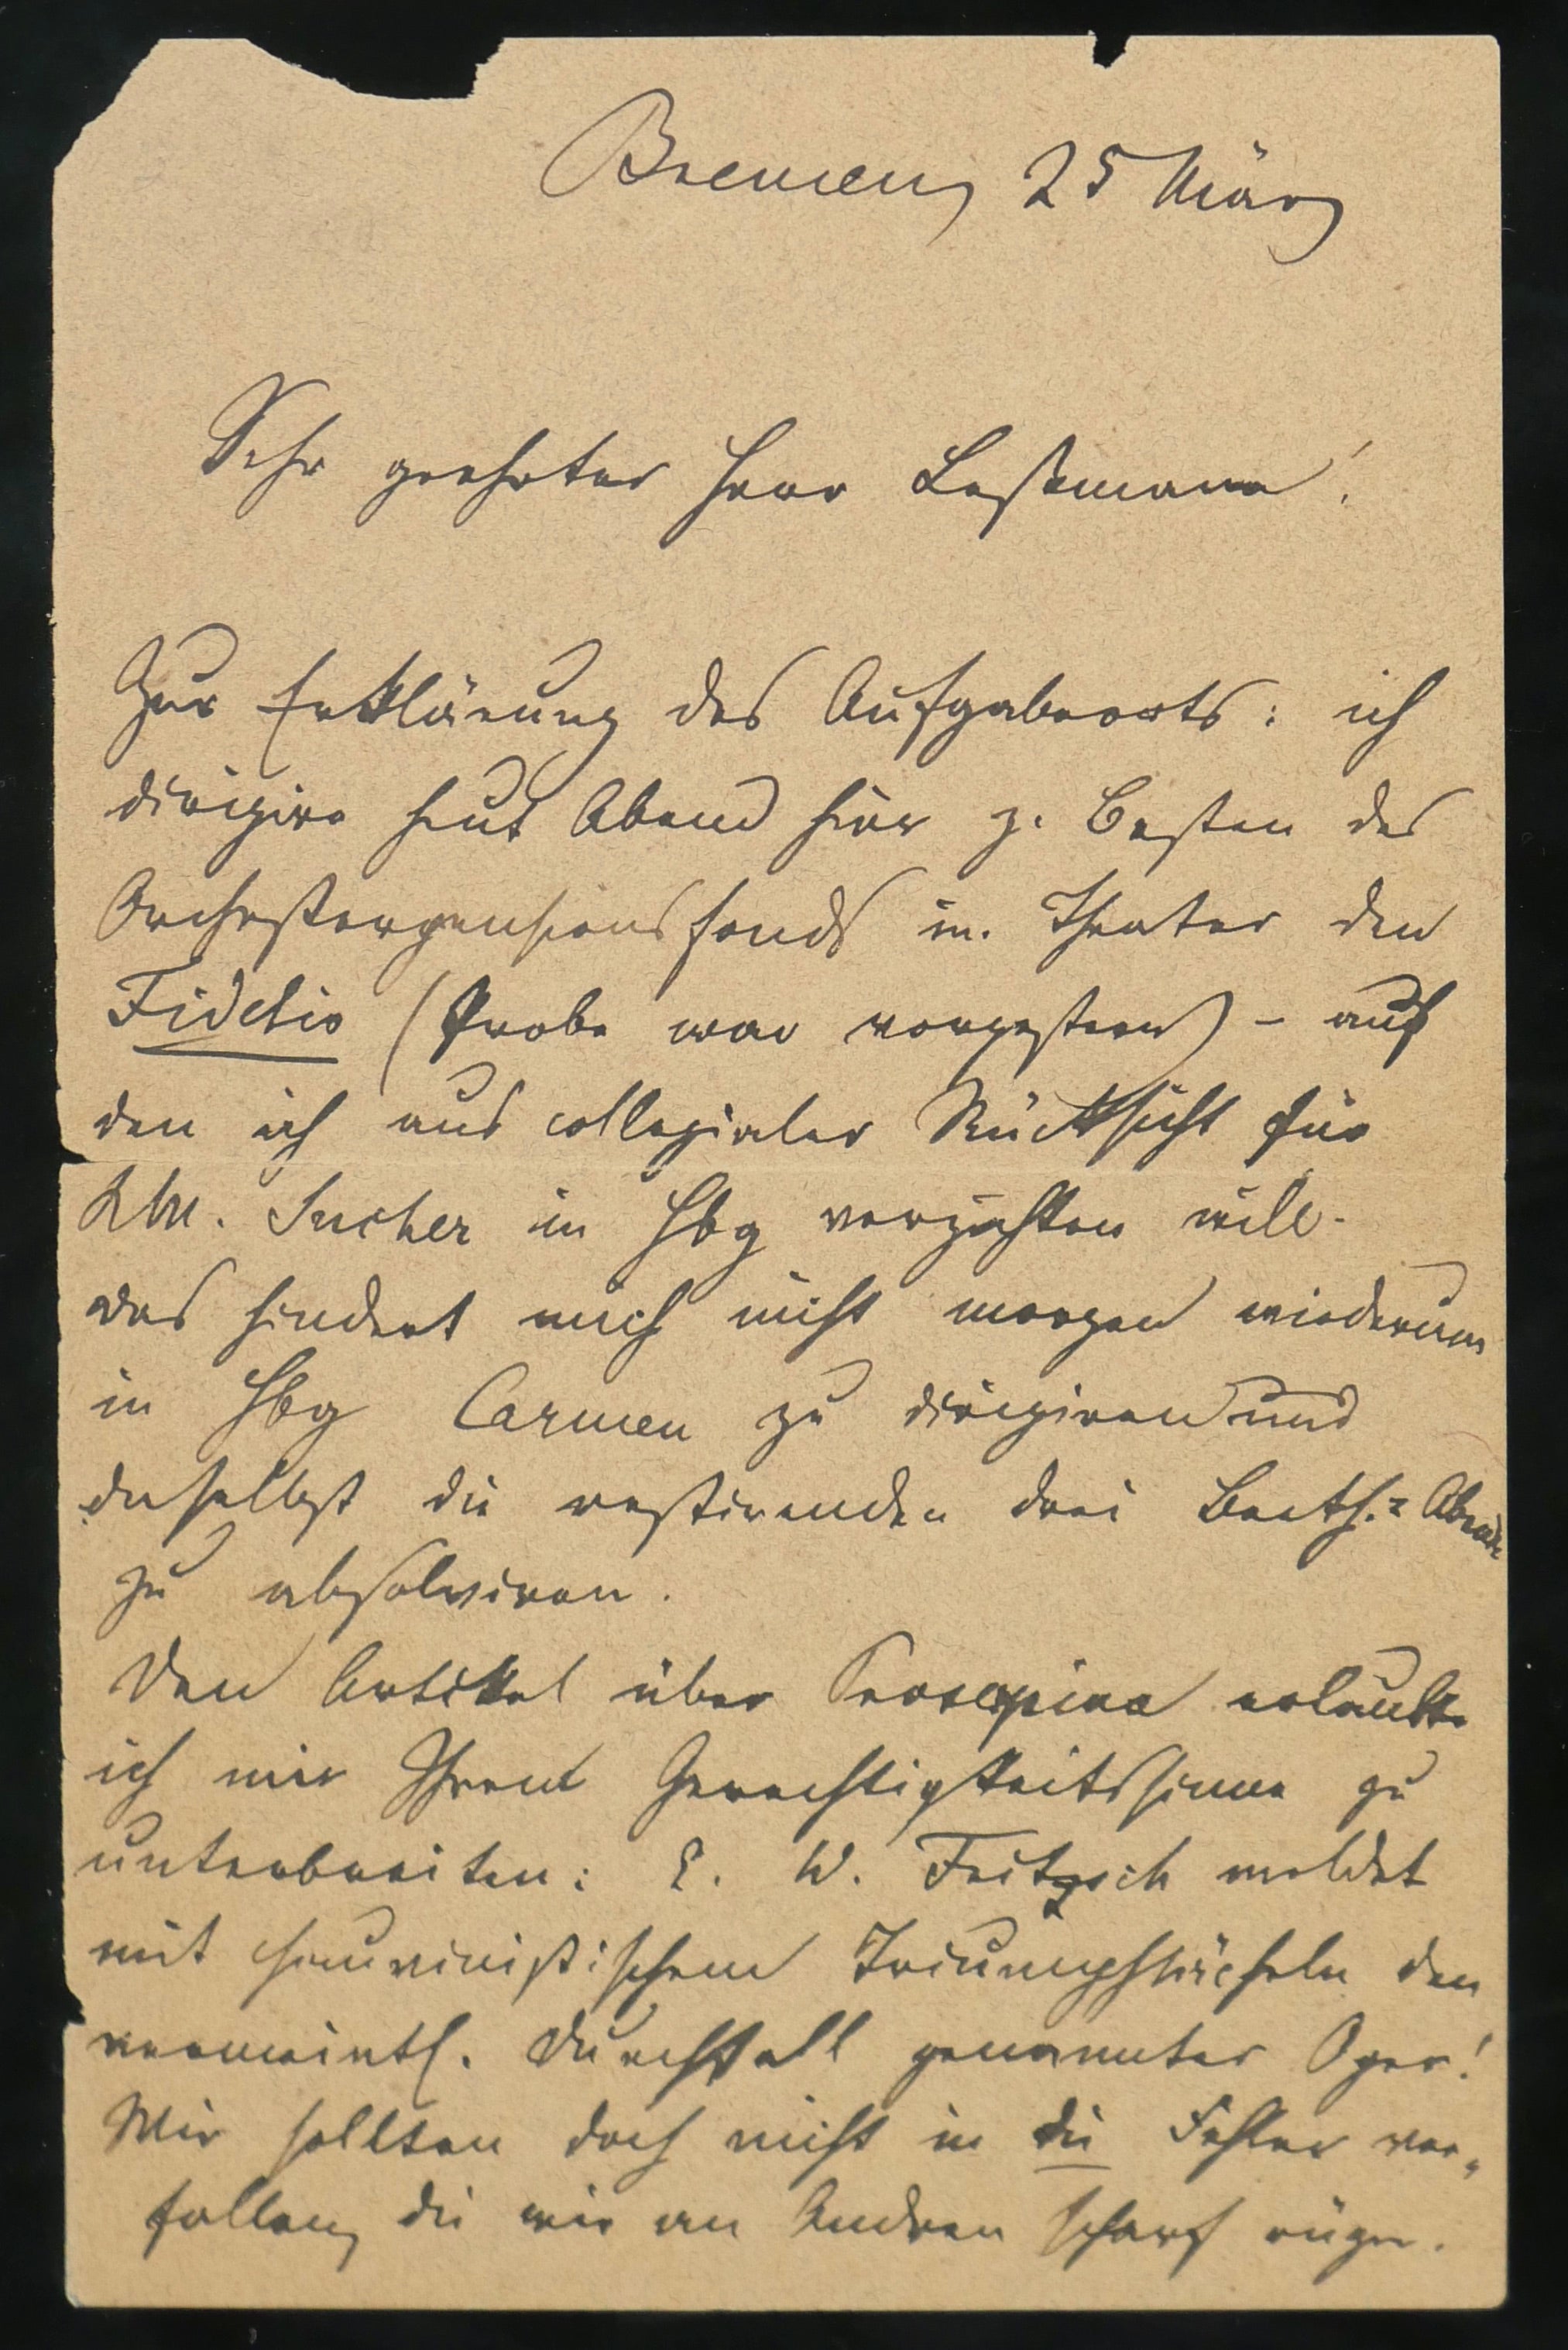 Bremen, 25 März
Sehr geehrter Herr Lessmann!
Zur Erklärung des Aufgabeorts: ich
dirigire heut Abend hier z. Besten des
Orchesterpensionsfonds im Theater den
Fidelio (Probe war vorgestern) – auf
den ich aus collegialer Rücksicht für
KM. Sucher in Hbg verzichten will.
das hindert mich nicht morgen wiederum
in Hbg Carmen zu dirigiren und
daselbst die restirenden drei Beeth.=Abende
zu absolviren.
Den Artikel über Proserpina erlaubte
ich mir Ihrem Gerechtigkeitssinne zu
unterbreiten: E. W. Fritzsch meldet
mit chauvinistischem Triumphlächeln den
vermeintl. Durchfall genannter Oper!
Wir sollten doch nicht in die Fehler ver-
fallen, die wir an Andren scharf rügen.